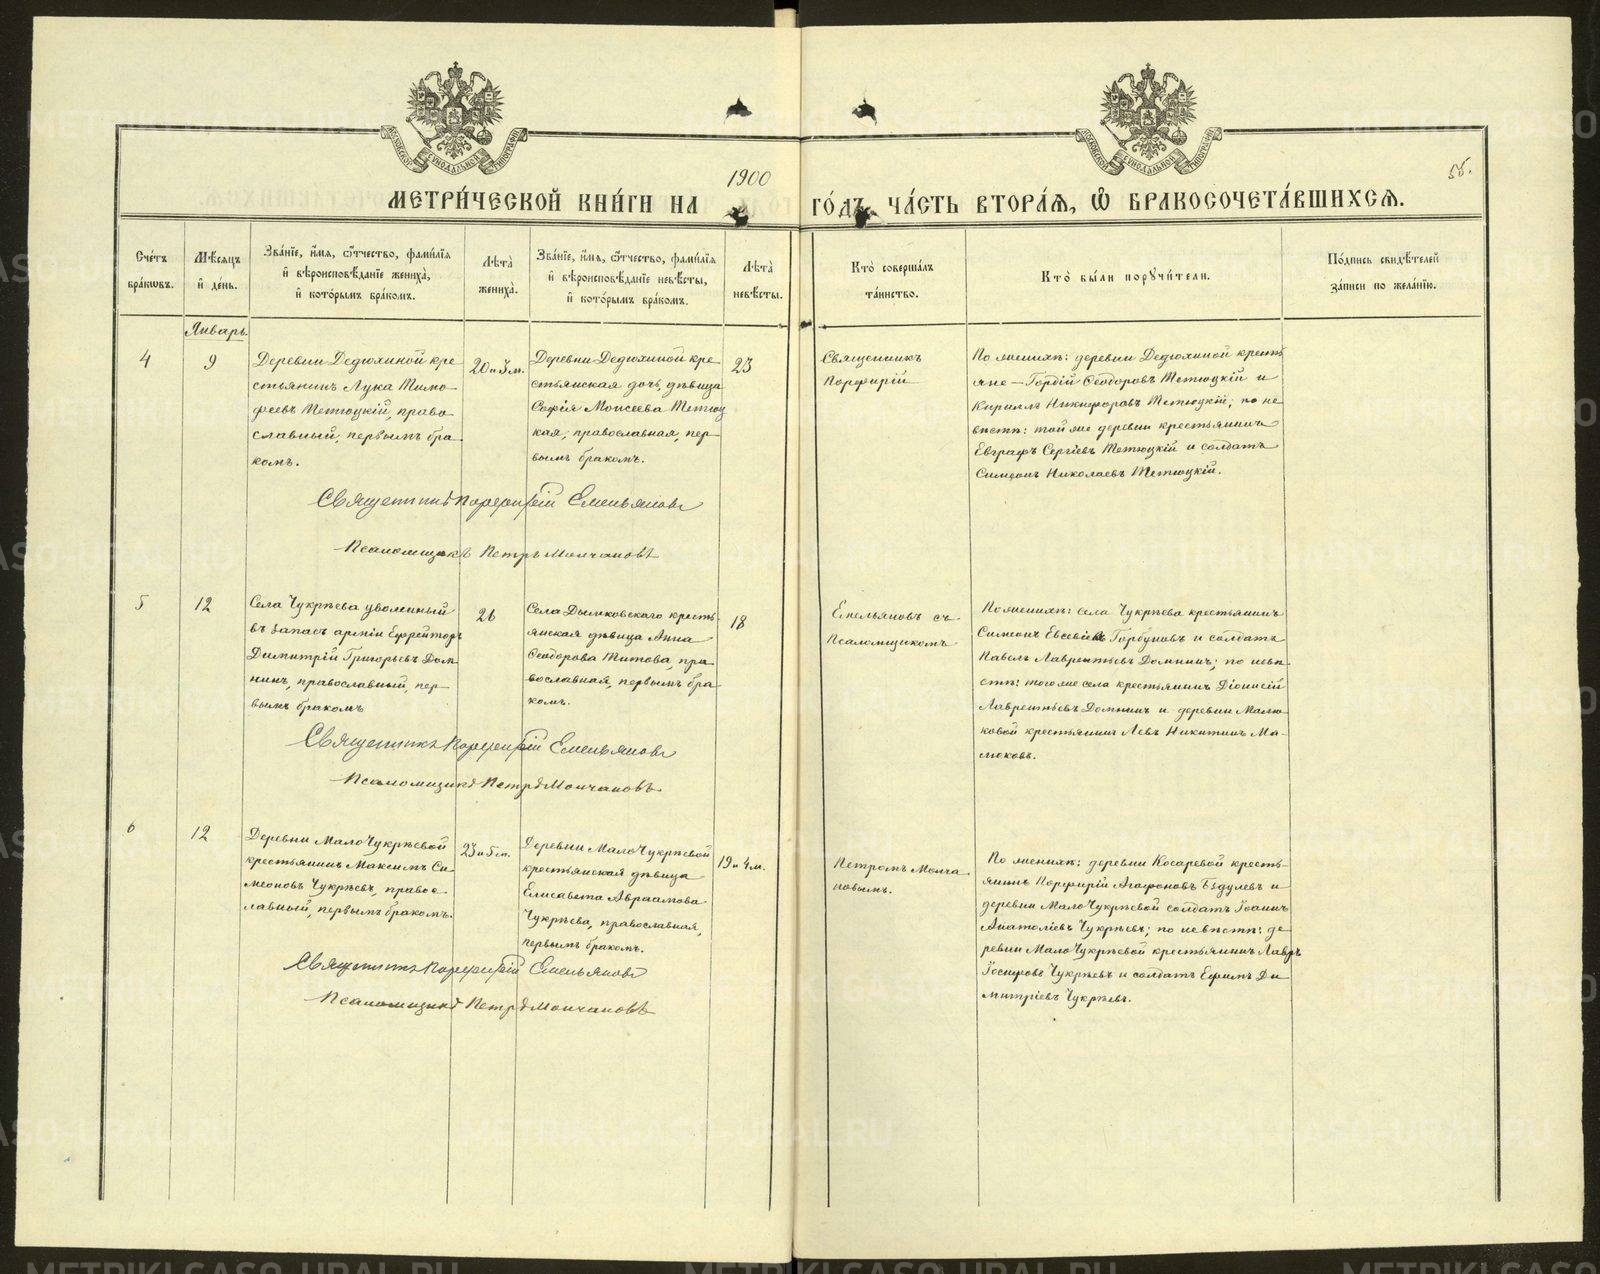 МОСКОВСКОЙ СѴНОДАЛЬНОЙ ТИПОГРАФІИ
МОСКОВСКОЙ СѴНОДАЛЬНОЙ ТИПОГРАФІИ
1900
МЕТРИ́ЧЕСКОЙ КНИ́ГИ НА
ГО́ДЪ, ЧА́СТЬ ВТОРА́Ѧ, Ѿ БРАКОСОЧЕТА́ВШИХСѦ.
Сче́тъ бра́кѡвъ.
Мѣ́сѧцъ и҆ де́нь.
Зва́нїе, и҆́мѧ, ѻ҆́тчество, фами́лїѧ
и҆ вѣроисповѣ́данїе жениха̀,
и҆ кото́рымъ бра́комъ.
Лѣ́та жениха̀.
Зва́нїе, и҆́мѧ, ѻ҆́тчество, фами́лїѧ
и҆ вѣроисповѣ́данїе невѣ́сты,
и҆ кото́рымъ бра́комъ.
Лѣ́та невѣ́сты.
Кто̀ соверша́лъ та́инство.
Кто̀ бы́ли порꙋчи́тели.
По́дпись свидѣ́телей за́писи по жела́нїю.
Январь.
4
9
Деревни Дедюхиной кре
стьянинъ Лука Тимо-
феевъ Тетюцкій, право
славный, первымъ бра
комъ.
20 и 3 м.
Деревни Дедюхиной кре
стьянская дочь, дѣвица
Софія Моисеева Тетюц
кая, православная, пер-
вымъ бракомъ.
23
Священникъ
Порфирій
По женихѣ: деревни Дедюхиной кресть
яне — Гордій Ѳеодоровъ Тетюцкій и
Кириллъ Никифоровъ Тетюцкій; по не
вѣстѣ: той же деревни крестьянинъ
Евграфъ Сергіевъ Тетюцкій и солдатъ
Симеонъ Николаевъ Тетюцкій.
Священникъ Порфирій Емельяновъ
Псаломщикъ Петръ Молчановъ
5
12
Села Чукрѣева уволенный
въ запасъ арміи Ефрейторъ
Димитрій Григорьевъ Дом
нинъ, православный, пер-
вымъ бракомъ
26
Села Дымковскаго кресть
янская дѣвица Анна
Ѳеодорова Титова, пра
вославная, первымъ бра-
комъ.
18
Емельяновъ съ
Псаломщикомъ
По женихѣ: села Чукрѣева крестьянинъ
Симеонъ Евсевіевъ Горбуновъ и солдатъ
Павелъ Лаврентьевъ Домнинъ; по невѣ
стѣ: того же села крестьянинъ Діонисій
Лаврентьевъ Домнинъ и деревни Малю
ковой крестьянинъ Левъ Никитинъ Ма-
люковъ.
Священникъ Порфирій Емельяновъ
Псаломщикъ Петръ Молчановъ
6
12
Деревни МалоЧукрѣевой
крестьянинъ Максимъ Си
меоновъ Чукрѣевъ, правос
лавный, первымъ бракомъ.
23 и 5 м.
Деревни МалоЧукрѣевой
крестьянская дѣвица
Елисавета Авраамова
Чукрѣева, православная,
первымъ бракомъ.
19 и 4 м.
Петромъ Молча
новымъ.
По женихѣ: деревни Косаревой кресть-
янинъ Порфирій Агафоновъ Бздулевъ и
деревни МалоЧукрѣевой солдатъ Іоаннъ
Анатоліевъ Чукрѣевъ; по невѣстѣ: де
ревни МалоЧукрѣевой крестьянинъ Лавръ
Іосифовъ Чукрѣевъ и солдатъ Ефимъ Ди
митріевъ Чукрѣевъ.
Священникъ Порфирій Емельяновъ
Псаломщикъ Петръ Молчановъ
METRIKI.GASO-URAL.RU